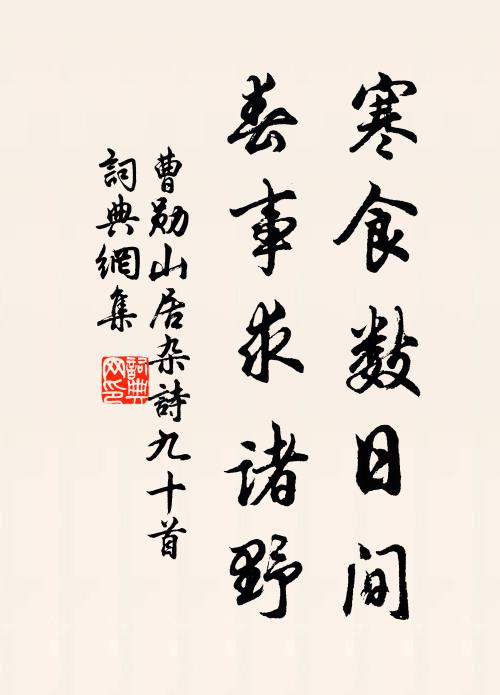 寒食数日间
春事求诸野
曹勋山居杂詩九十首
詞典網集
詞典网印